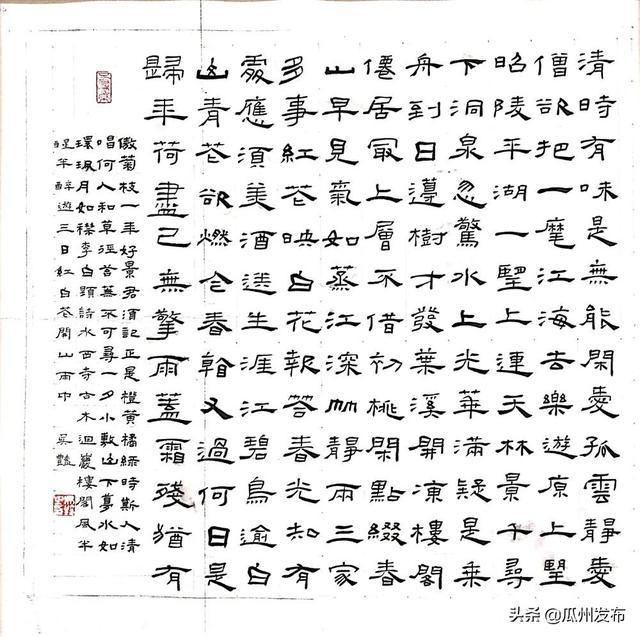 清時有味是無能閑愛孤雲靜愛
僧欲把一麾江海去樂遊原上望
昭陵平湖一望上連天林景千尋
下洞泉忽驚水上光華滿疑是乘
舟到日邊樹才發葉溪開凍樓閣
僊居最上層不借初桃閑點綴春
山早見氣如蒸江深竹靜兩三家
多事紅花映白花報答春光知有
處應須美酒送生涯江碧鳥逾白
山青花欲燃今春看又過何日是
歸年荷盡已無擎雨蓋霜殘猶有
傲菊枝一年好景君須記正是橙黃橘綠時斯人清
唱何人和草徑苔蕪不可尋一夕小敷山下夢水如
環珮月如襟李白題詩水西寺古木迴巖樓閣風半
醒半醉遊三日紅白花開山雨中 吳豔
头条 @瓜州发布